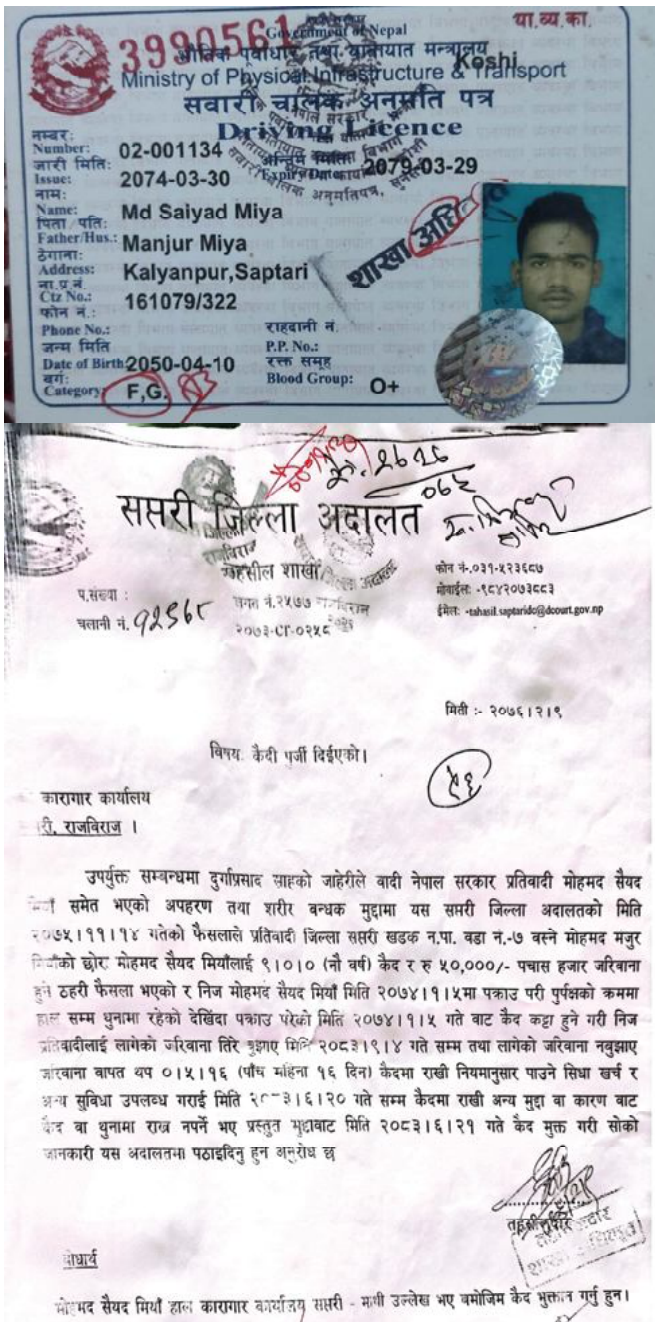 3990561
Government of Nepal
या.व्य.का.
Koshi
भौतिक पूर्वाधार तथा यातायात मन्त्रालय
Ministry of Physical Infrastructure & Transport
सवारी चालक अनुमति पत्र
Driving Licence
नम्बर:
Number: 02-001134
जारी मिति: अन्तिम मिति
Issue: 2074-03-30 Expiry Date: 2079-03-29
नाम:
Name: Md Saiyad Miya
पिता/पति:
Father/Hus.: Manjur Miya
ठेगाना:
Address: Kalyanpur,Saptari
ना.प्र.नं.
Ctz No.: 161079/322
फोन नं.:
Phone No.: राहदानी नं.
जन्म मिति P.P. No.:
Date of Birth: 2050-04-10 रक्त समूह
वर्ग: Blood Group: O+
Category: F,G.
शाखा
सप्तरी जिल्ला अदालत
तहसील शाखा
फोन नं.-०३१-५२३६८७
प.संख्या :
लगत नं.२५७७
मोवाईल: -९८४२०७३८८३
चलानी नं.
२०७३-CR-०२५८
ईमेल: -tahasil.saptaridc@dcourt.gov.np
मिती :- २०७६।२।९
विषय: कैदी पूर्जी दिईएको।
५६
कारागार कार्यालय
राजविराज ।
उपर्युक्त सम्बन्धमा दुर्गाप्रसाद साहको जाहेरीले वादी नेपाल सरकार प्रतिवादी मोहमद सैयद
मियाँ समेत भएको अपहरण तथा शरीर वन्धक मुद्दामा यस सप्तरी जिल्ला अदालतको मिति
२०७५।११।१४ गतेको फैसलाले प्रतिवादी जिल्ला सप्तरी खडक न.पा. वडा नं.-७ वस्ने मोहमद मजुर
मियाँको छोरा मोहमद सैयद मियाँलाई ९।०।० (नौ वर्ष) कैद र रु ५०,०००/- पचास हजार जरिवाना
हुने ठहरी फैसला भएको र निज मोहमद सैयद मियाँ मिति २०७४।१।५मा पक्राउ परी पुर्पक्षको क्रममा
हाल सम्म थुनामा रहेको देखिंदा पक्राउ परेको मिति २०७४।१।५ गते वाट कैद कट्टा हुने गरी निज
प्रतिवादीलाई लागेको जरिवाना तिरे वुझाए मिति २०८३।१।४ गते सम्म तथा लागेको जरिवाना नवुझाए
जरिवाना वापत थप ०।५।१६ (पाँच महिना १६ दिन) कैदमा राखी नियमानुसार पाउने सिधा खर्च र
अन्य सुविधा उपलब्ध गराई मिति ३।६।२० गते सम्म कैदमा राखी अन्य मुद्दा वा कारण वाट
कैद वा थुनामा राख्न नपर्ने भए प्रस्तुत मुद्दावाट मिति २०८३।६।२१ गते कैद मुक्त गरी सोको
जानकारी यस अदालतमा पठाइदिनु हुन अनुरोध छ
तहसीलदार
वोधार्थ
मोहमद सैयद मियाँ हाल कारागार कार्यालय सप्तरी - माथी उल्लेख भए वमोजिम कैद भुक्तान गर्नु हुन।